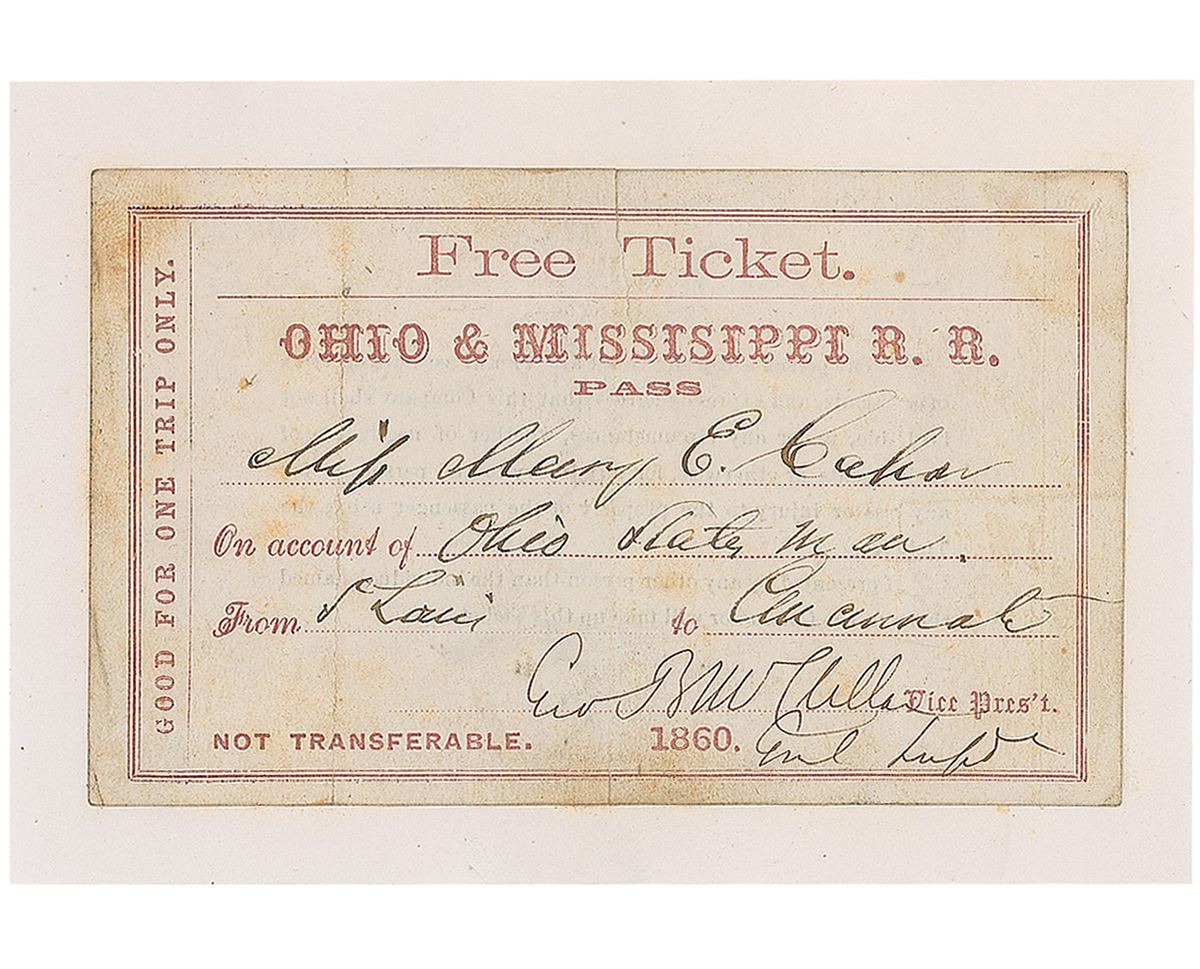 Free Ticket.
OHIO & MISSISSIPPI R. R.
PASS
Miss Mary E.
On account of Ohio States man.
From St Louis to Cincinnati
Geo B McClellan Vice Pres't.
NOT TRANSFERABLE. 1860. Genl Supt
GOOD FOR ONE TRIP ONLY.